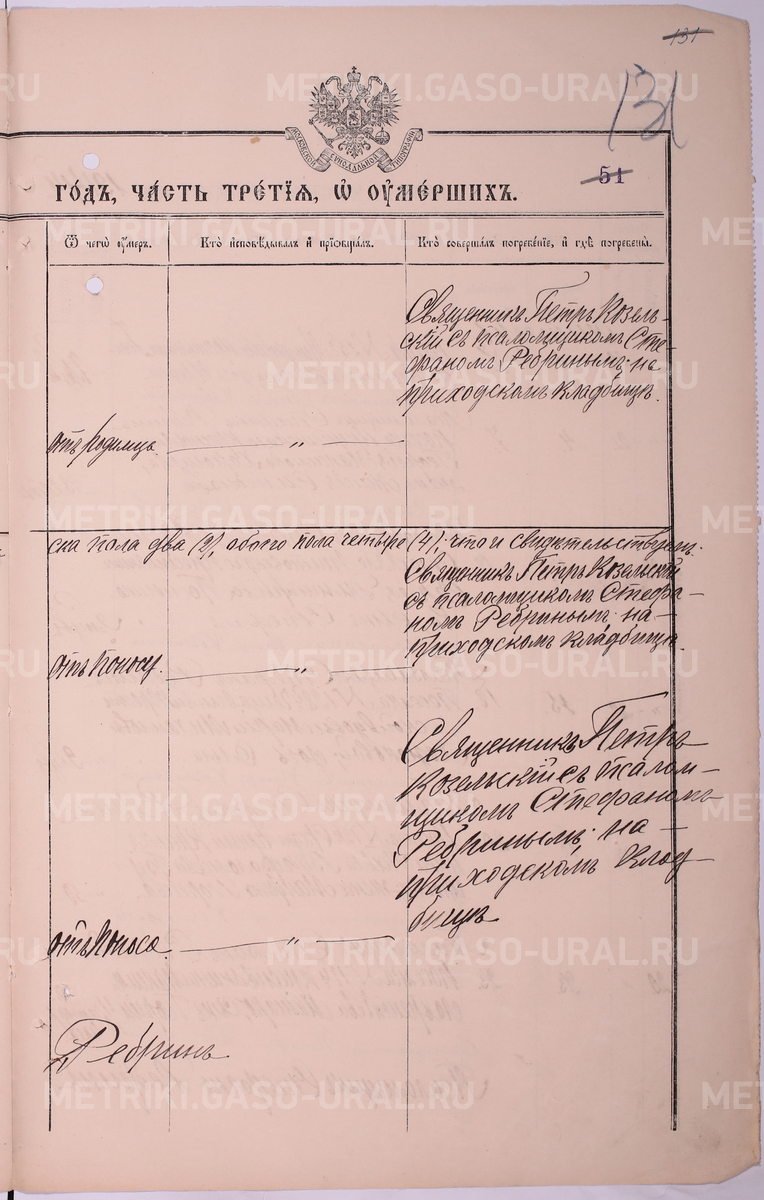 131
131
МОСКОВСКОЙ СѴНОДАЛЬНОЙ ТИПОГРАФІИ
51
ГОДЪ, ЧАСТЬ ТРЕТІЯ, Ѡ ОУМЕРШИХЪ.
Ѿ чегѡ ᲂумеръ.
Кто исповѣдывалъ и пріобщалъ.
Кто совершалъ погребеніе, и гдѣ погребены.
Священникъ Петръ Козель-
скій съ псаломщикомъ Сте-
фаномъ Ребринымъ на
приходскомъ кладбищѣ.
отъ родимца. — „ —
ска пола два (2), обоего пола четыре (4): что и свидѣтельствуемъ:
Священникъ Петръ Козельскій
съ псаломщикомъ Стефа-
номъ Ребринымъ на-
приходскомъ кладбищѣ.
отъ поносу. — „ —
Священникъ Петръ
Козельскій съ псалом-
щикомъ Стефаномъ
Ребринымъ, на-
приходскомъ клад-
бищѣ
отъ поноса. — „ —
Ребринъ
METRIKI.GASO-URAL.RU